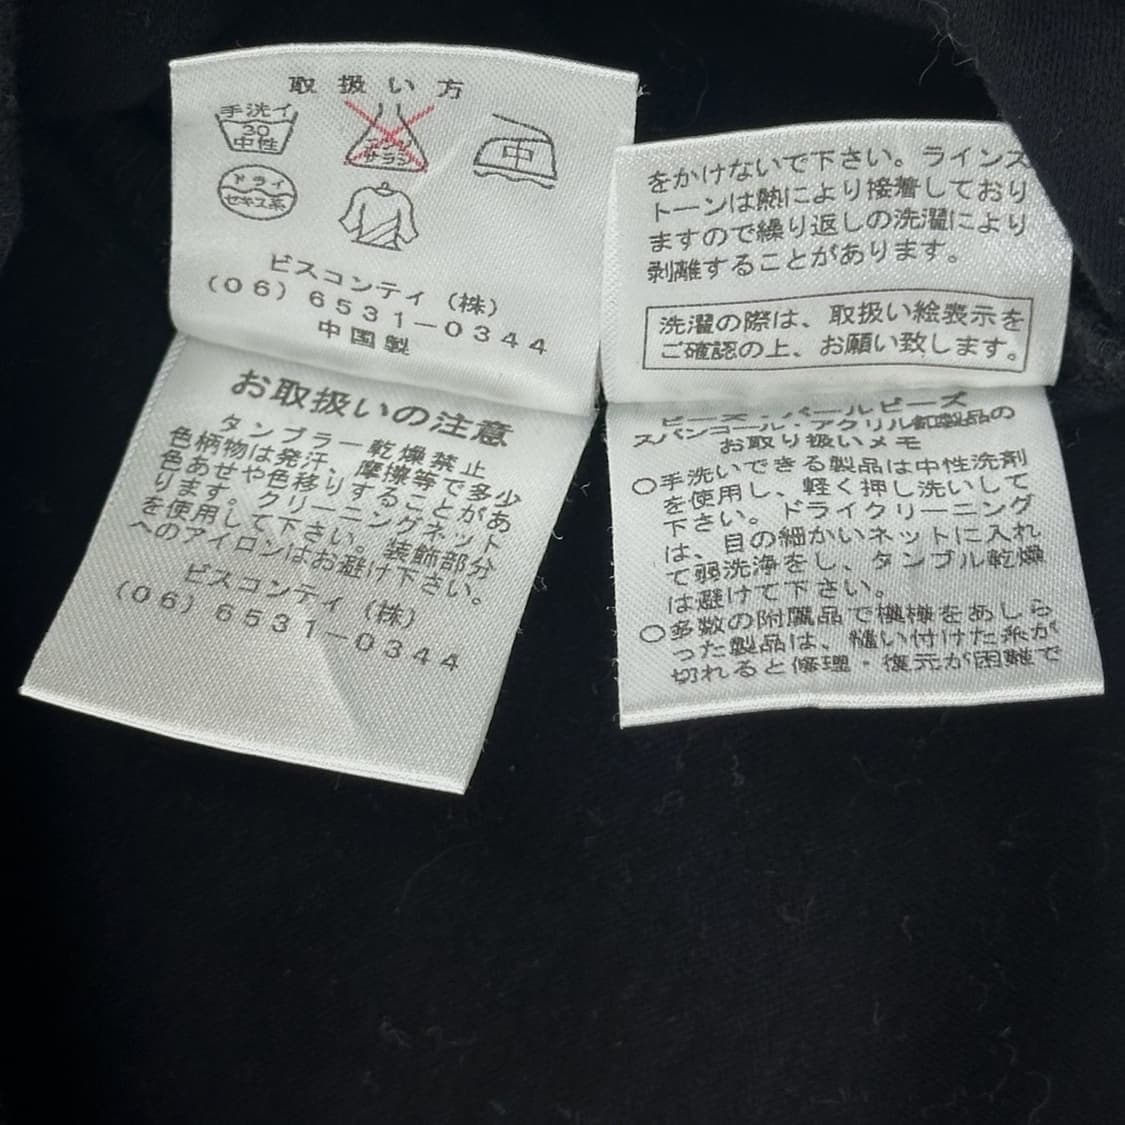 取扱い方
手洗イ
30
中性
エンソ
サラシ
中
ドライ
セキユ系
ビスコンティ(株)
(06)6531-0344
中国製
お取扱いの注意
タンブラー乾燥禁止
色柄物は発汗、摩擦等で多少
色あせや色移りすることがあ
ります。クリーニングネット
を使用して下さい。装飾部分
へのアイロンはお避け下さい。
ビスコンティ(株)
(06)6531-0344
をかけないで下さい。ラインス
トーンは熱により接着しており
ますので繰り返しの洗濯により
剥離することがあります。
洗濯の際は、取扱い絵表示を
ご確認の上、お願い致します。
ビーズ・パールビーズ
スパンコール・アクリル釦製品の
お取り扱いメモ
○手洗いできる製品は中性洗剤
を使用し、軽く押し洗いして
下さい。ドライクリーニング
は、目の細かいネットに入れ
て弱洗海をし、タンブル乾燥
は避けて下さい。
○多数の附属品で模様をあしら
った製品は、縫い付けた糸が
切れると修理・復元が困難で